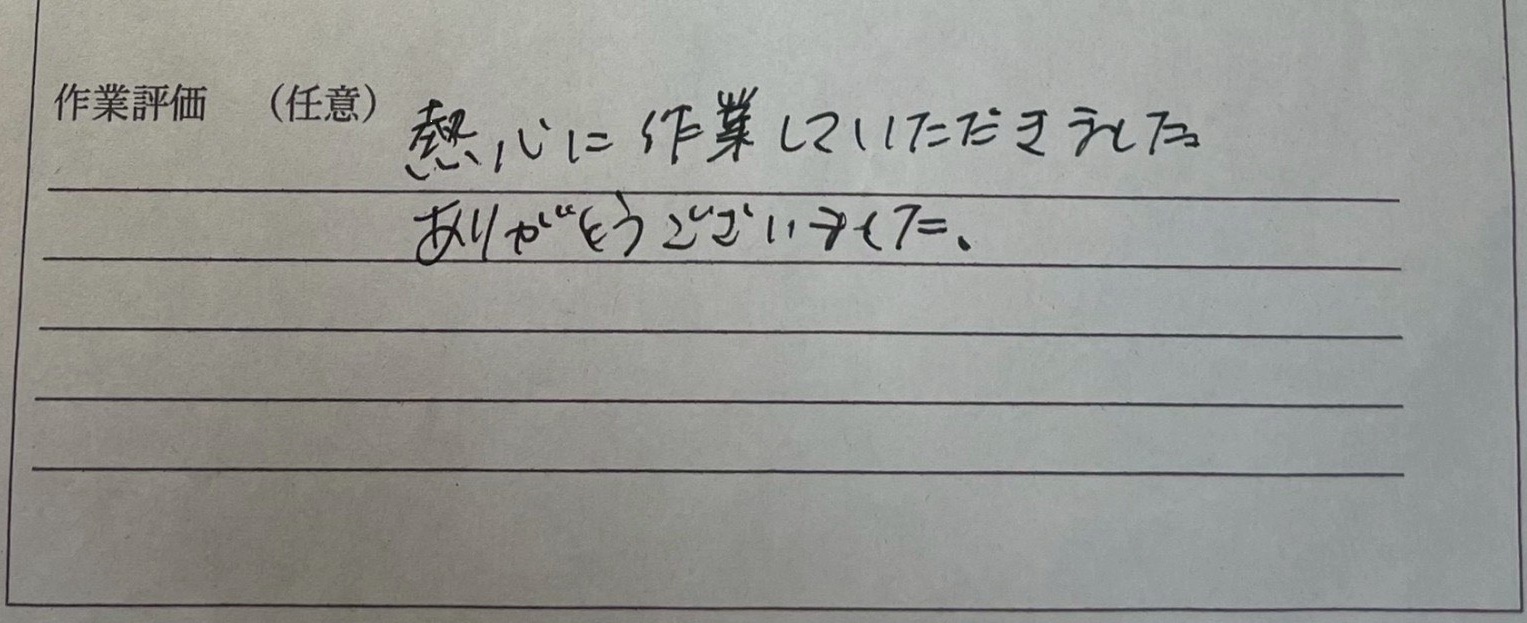 作業評価 （任意） 熱心に作業していただきました。
ありがとうございました。